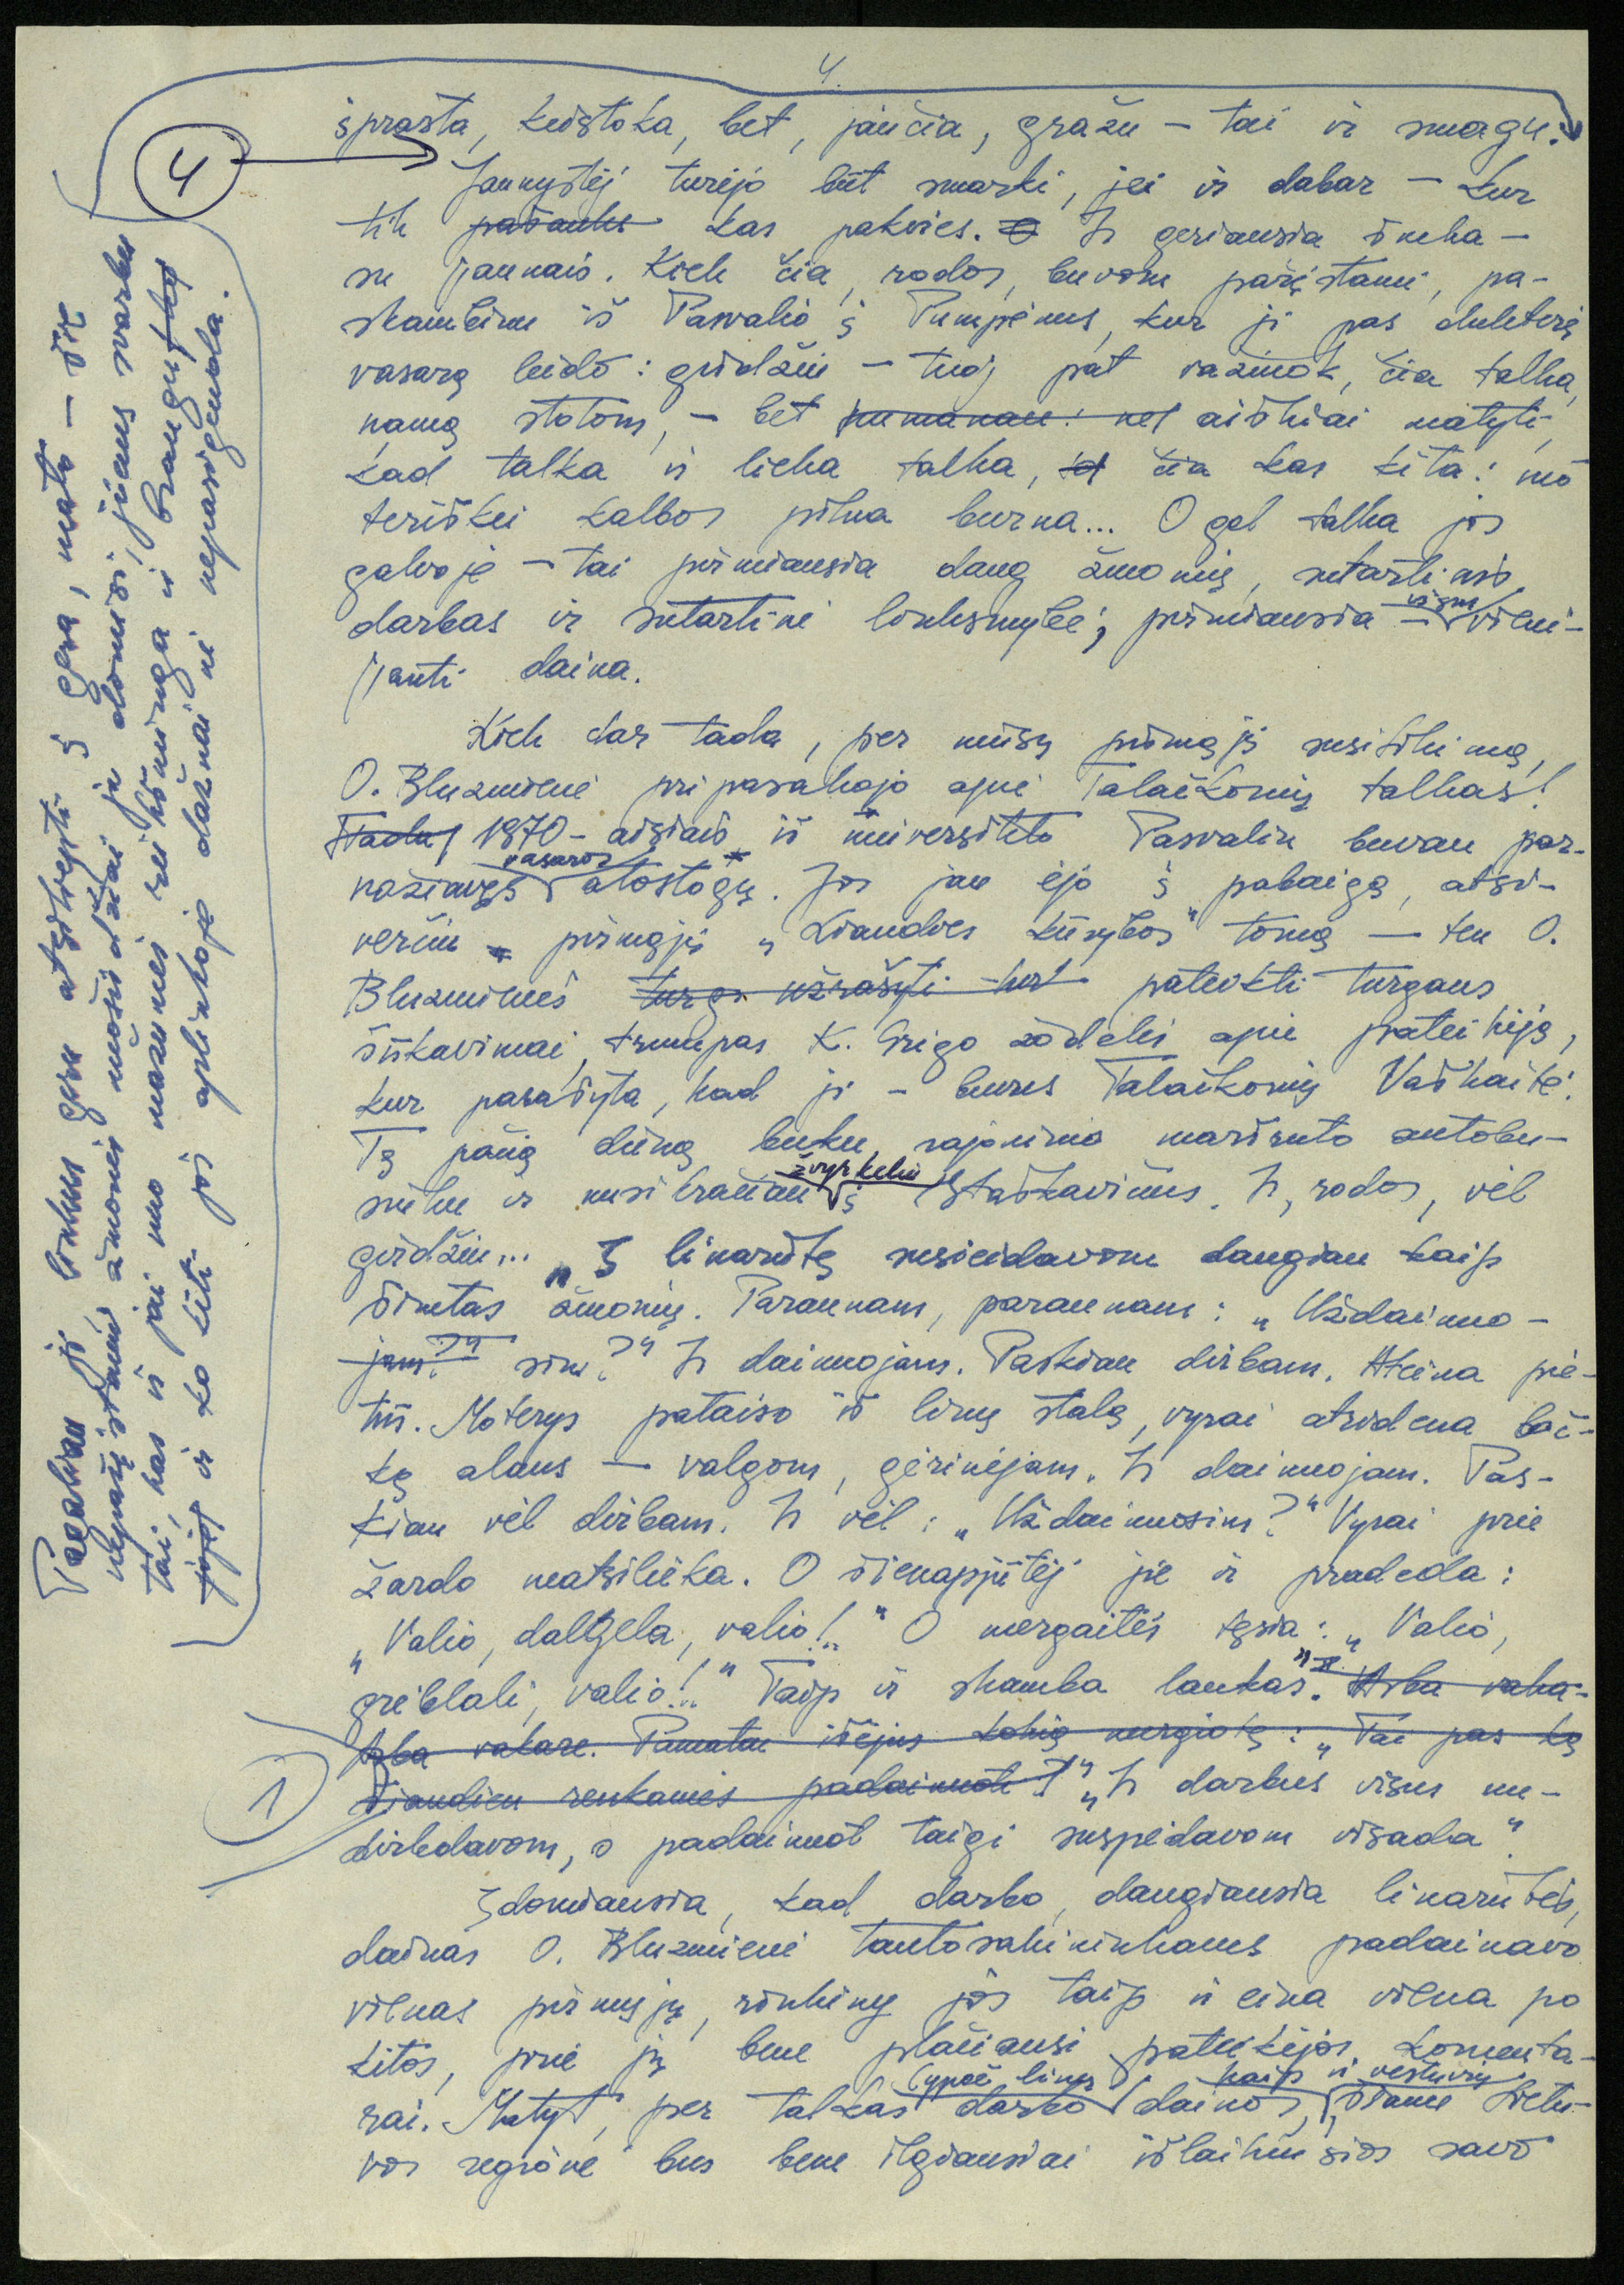 4.
įprasta, keistoka, bet, jaučia, gražu – tai ir smagu.
4
Jaunystėj turėjo būt smarki, jei ir dabar – kur
tik pašauks kas pakvies. Ir geriausia šneka –
su jaunais. Kiek čia, rodos, buvom pažįstami, pa-
skambinu iš Pasvalio į Pumpėnus, kur ji pas dukterį
vasarą leido: girdžiu – tuoj pat važiuok, čia talka,
namą statom, – bet numanau: nes aiškiai matyti,
kad talka ir lieka talka, čia kas kita: mo
teriškei kalbos pilna burna... O gal talka jos
galvoje – tai pirmiausia daug žmonių, sutartinis
darbas ir sutartinė linksmybė; pirmiausia – visus vieni-
janti daina.
Kiek dar tada, per mūsų pirmąjį susitikimą,
O. Bluzmienė pripasakojo apie Talačkonių talkas!
Tada 1970-aisiais iš universiteto Pasvalin buvau par-
važiavęs vasaros atostogų. Jos jau ėjo į pabaigą, atsi-
verčiu pirmąjį „Liaudies kūrybos" tomą — ten O.
Bluzmienės turgu užrašyti kur pateikti turgaus
šūkavimai, trumpas K. Grigo žodelis apie pateikėją,
kur parašyta, kad ji – buvus Talačkonių Vaškaitė.
Tą pačią dieną buku rajoninio maršruto autobu-
siuku ir nusibračiau žvyrkeliu į Staškavičius. Ir, rodos, vėl
girdžiu... „Į linarūtę susieidavom daugiau kaip
šimtas žmonių. Paraunam, paraunam: „Uždainuo-
jam?" sim?" Ir dainuojam. Paskiau dirbam. Ateina pie-
tūs. Moterys pataiso iš linų stalą, vyrai atridena bač-
ką alaus — valgom, gėrinėjam. Ir dainuojam. Pas-
kiau vėl dirbam. Ir vėl: „Uždainuosim?" Vyrai prie
žardo neatsilieka. O šienapjūtėj jie ir pradeda:
„Valio, dalgela, valio!.." O mergaitės tęsia: „Valio,
grėblali, valio!.." Taip ir skamba laukas". Arba vaka-
Arba vakare. Pamatai išėjus kokią mergiotę: „Tai pas ką
šiandien renkamės padainuoti?" „Ir darbus visus nu-
1
dirbdavom, o padainuot taigi suspėdavom visada".
Įdomiausia, kad darbo, daugiausia linarūtės,
dainas O. Bluzmienė tautosakininkams padainavo
vienas pirmųjų, rinkiny jos taip ir eina viena po
kitos, prie jų bene plačiausi pateikėjos komenta-
rai. Matyt, per talkas darbo (ypač linų) dainos, kaip ir vestuvių, šiame Lietu-
vos regione bus bene ilgiausiai išlaikiusios savo
Pagaliau ji, linkus gera atsiliepti į gera, mato – šie
nepažįstami žmonės nuoširdžiai ja domisi, jiems svarbu
tai, kas ir jai nuo mažumės reikšminga ir brangu, kas
joje, ir ko kiti jos aplinkoje dažnai nė nepasigenda.